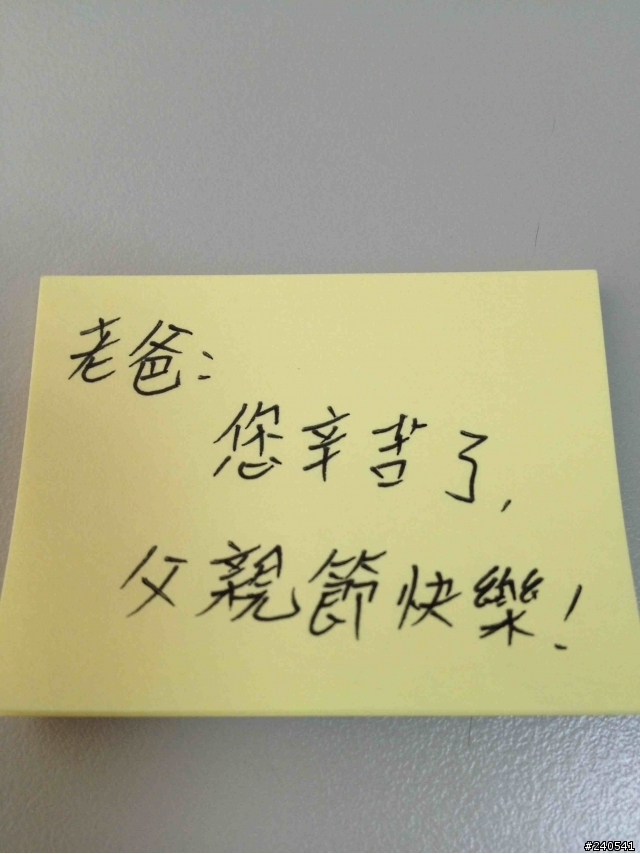 老爸：
您辛苦了，
父親節快樂！
#240541